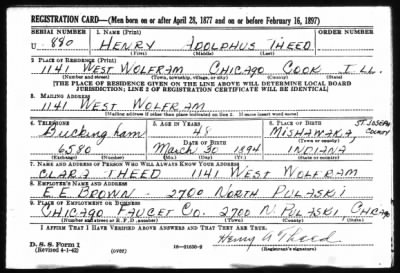 REGISTRATION CARD—(Men born on or after April 28, 1877 and on or before February 16, 1897)
SERIAL NUMBER 1. NAME (Print) ORDER NUMBER
U 880 HENRY ADOLPHUS THEED
(First) (Middle) (Last)
2. PLACE OF RESIDENCE (Print)
1141 WEST WOLFRAM CHICAGO COOK ILL.
(Number and street) (Town, township, village, or city) (County) (State)
[THE PLACE OF RESIDENCE GIVEN ON THE LINE ABOVE WILL DETERMINE LOCAL BOARD
JURISDICTION; LINE 2 OF REGISTRATION CERTIFICATE WILL BE IDENTICAL]
3. MAILING ADDRESS
1141 WEST WOLFRAM
[Mailing address if other than place indicated on line 2. If same insert word same]
4. TELEPHONE 5. AGE IN YEARS 6. PLACE OF BIRTH ST. JOSEPH
Buckingham 48 MISHAWAKA, COUNTY
DATE OF BIRTH (Town or county)
6580 March 30 1894 INDIANA
(Exchange) (Number) (Mo.) (Day) (Yr.) (State or country)
7. NAME AND ADDRESS OF PERSON WHO WILL ALWAYS KNOW YOUR ADDRESS
CLARA THEED 1141 WEST WOLFRAM
8. EMPLOYER'S NAME AND ADDRESS
E.E. BROWN - 2700 NORTH PULASKI
9. PLACE OF EMPLOYMENT OR BUSINESS
CHICAGO FAUCET CO. 2700 N. PULASKI CHICAGO
(Number and street or R. F. D. number) (Town) (County) (State)
I AFFIRM THAT I HAVE VERIFIED ABOVE ANSWERS AND THAT THEY ARE TRUE.
D. S. S. Form 1 Henry A Theed
(Revised 4-1-42) (over) (Registrant's signature)